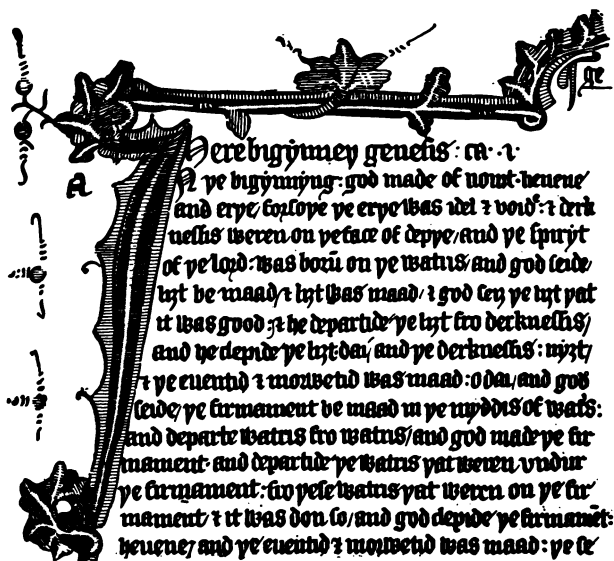 ge
Here bigynney genesis: ca. i.
a
N ye bigynnyng: god made of nowt. heuene
and erye, forsoye ye erye was idel ⁊ void: ⁊ derk
nessis weren on ye face of depye, and ye spiryt
of ye lord: was borū on ye watris, and god seide
liȝt be maad, ⁊ liȝt was maad, ⁊ god seȝ ye liȝt yat
it was good: ⁊ he departide ye liȝt fro derknessis,
and he clepide ye liȝt. dai, and ye derknessis: nyȝt,
⁊ ye euentid ⁊ morwetid was maad: o dai, and god
seide, ye firmament be maad in ye myddis of watˢ:
and departe watris fro watris, and god made ye fir
mament. and departide ye watris yat weren vndur
ye firmament: fro yese watris yat weren on ye fir
mament, ⁊ it was don so, and god clepide ye firmamēt:
heuene, and ye euentid ⁊ morwetid was maad: ye se